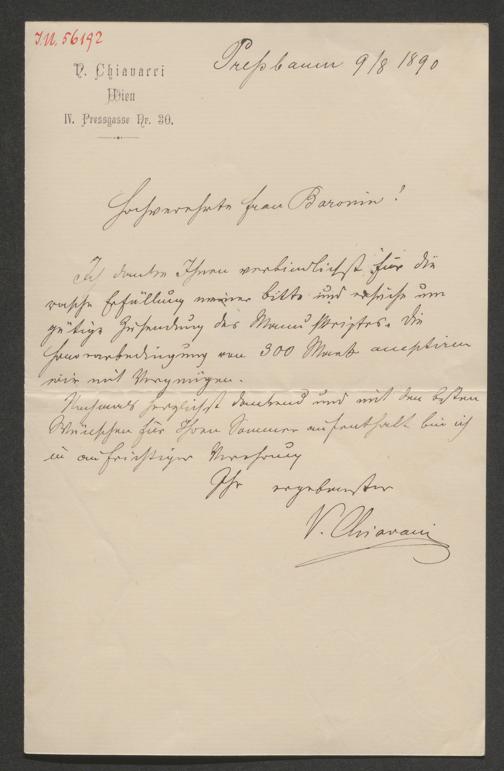 J.N. 56192
V. Chiavacci
Wien
IV. Pressgasse Nr. 30.
Preßbaum 9/8 1890
Hochverehrte Frau Baronin!
Ich danke Ihnen verbindlichst für die
rasche Erfüllung meiner Bitte und ersuche um
gütige Zusendung des Manuskriptes. Die
Honorarbedingung von 300 Mark acceptiren
wir mit Vergnügen.
Nochmals herzlichst dankend und mit den besten
Wünschen für Ihren Sommeraufenthalt bin ich
in aufrichtiger Verehrung
Ihr ergebenster
V. Chiavacci